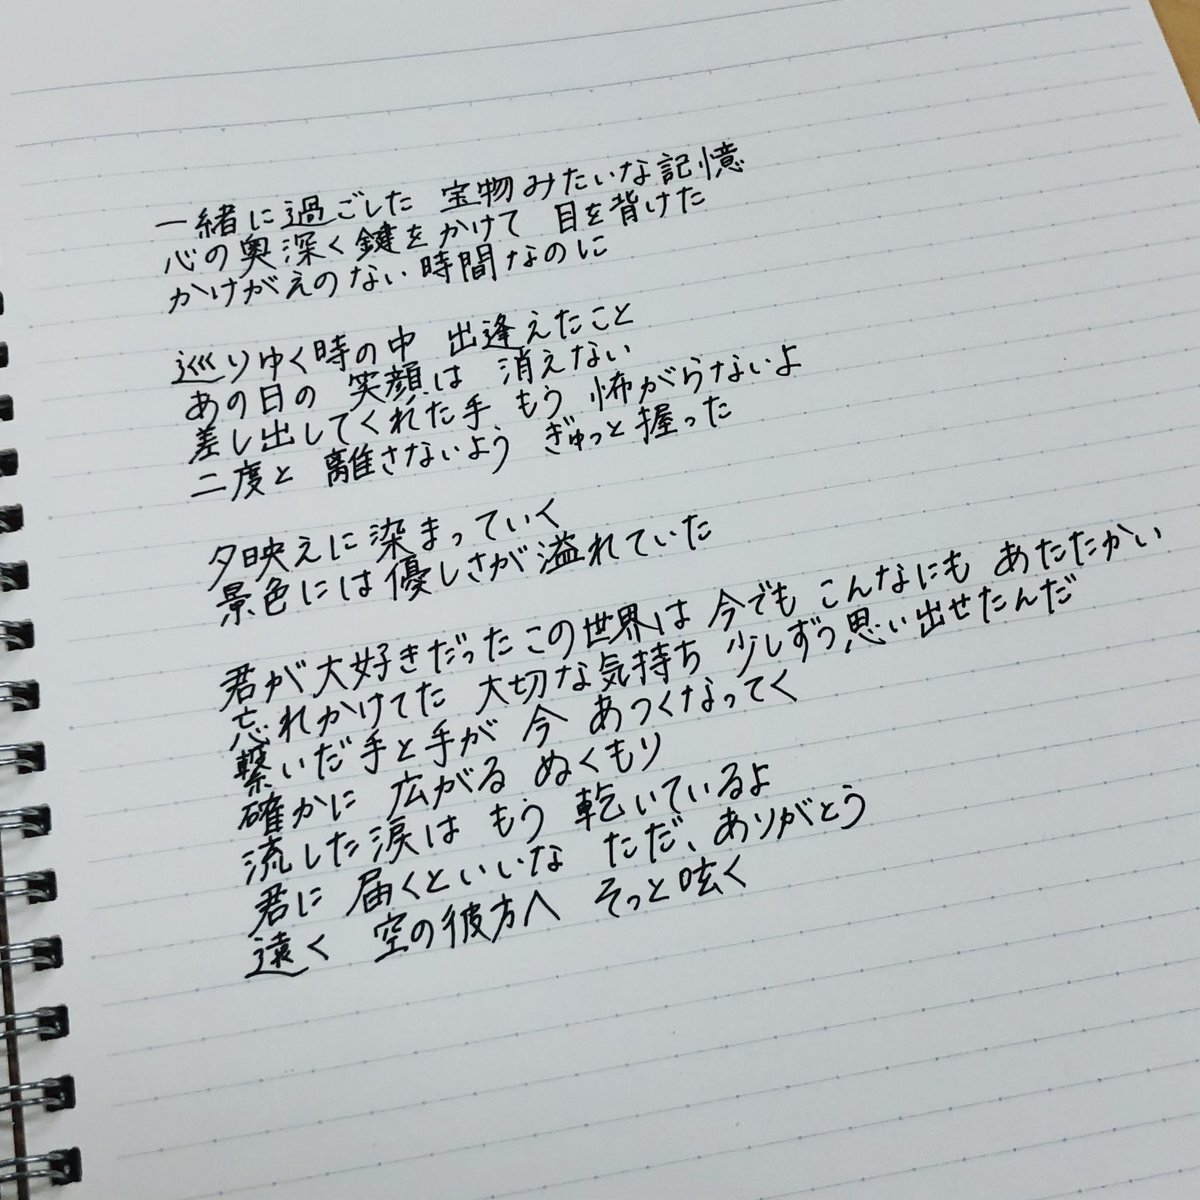 一緒に過ごした 宝物みたいな記憶
心の奥深く鍵をかけて 目を背けた
かけがえのない時間なのに
巡りゆく時の中 出逢えたこと
あの日の 笑顔は 消えない
差し出してくれた手 もう 怖がらないよ
二度と 離さないよう ぎゅっと握った
夕映えに染まっていく
景色には優しさが溢れていた
君が大好きだったこの世界は 今でも こんなにも あたたかい
忘れかけてた 大切な気持ち 少しずつ思い出せたんだ
繋いだ手と手が 今 あつくなってく
確かに 広がる ぬくもり
流した涙は もう 乾いているよ
君に 届くといいな ただ、ありがとう
遠く 空の彼方へ そっと呟く